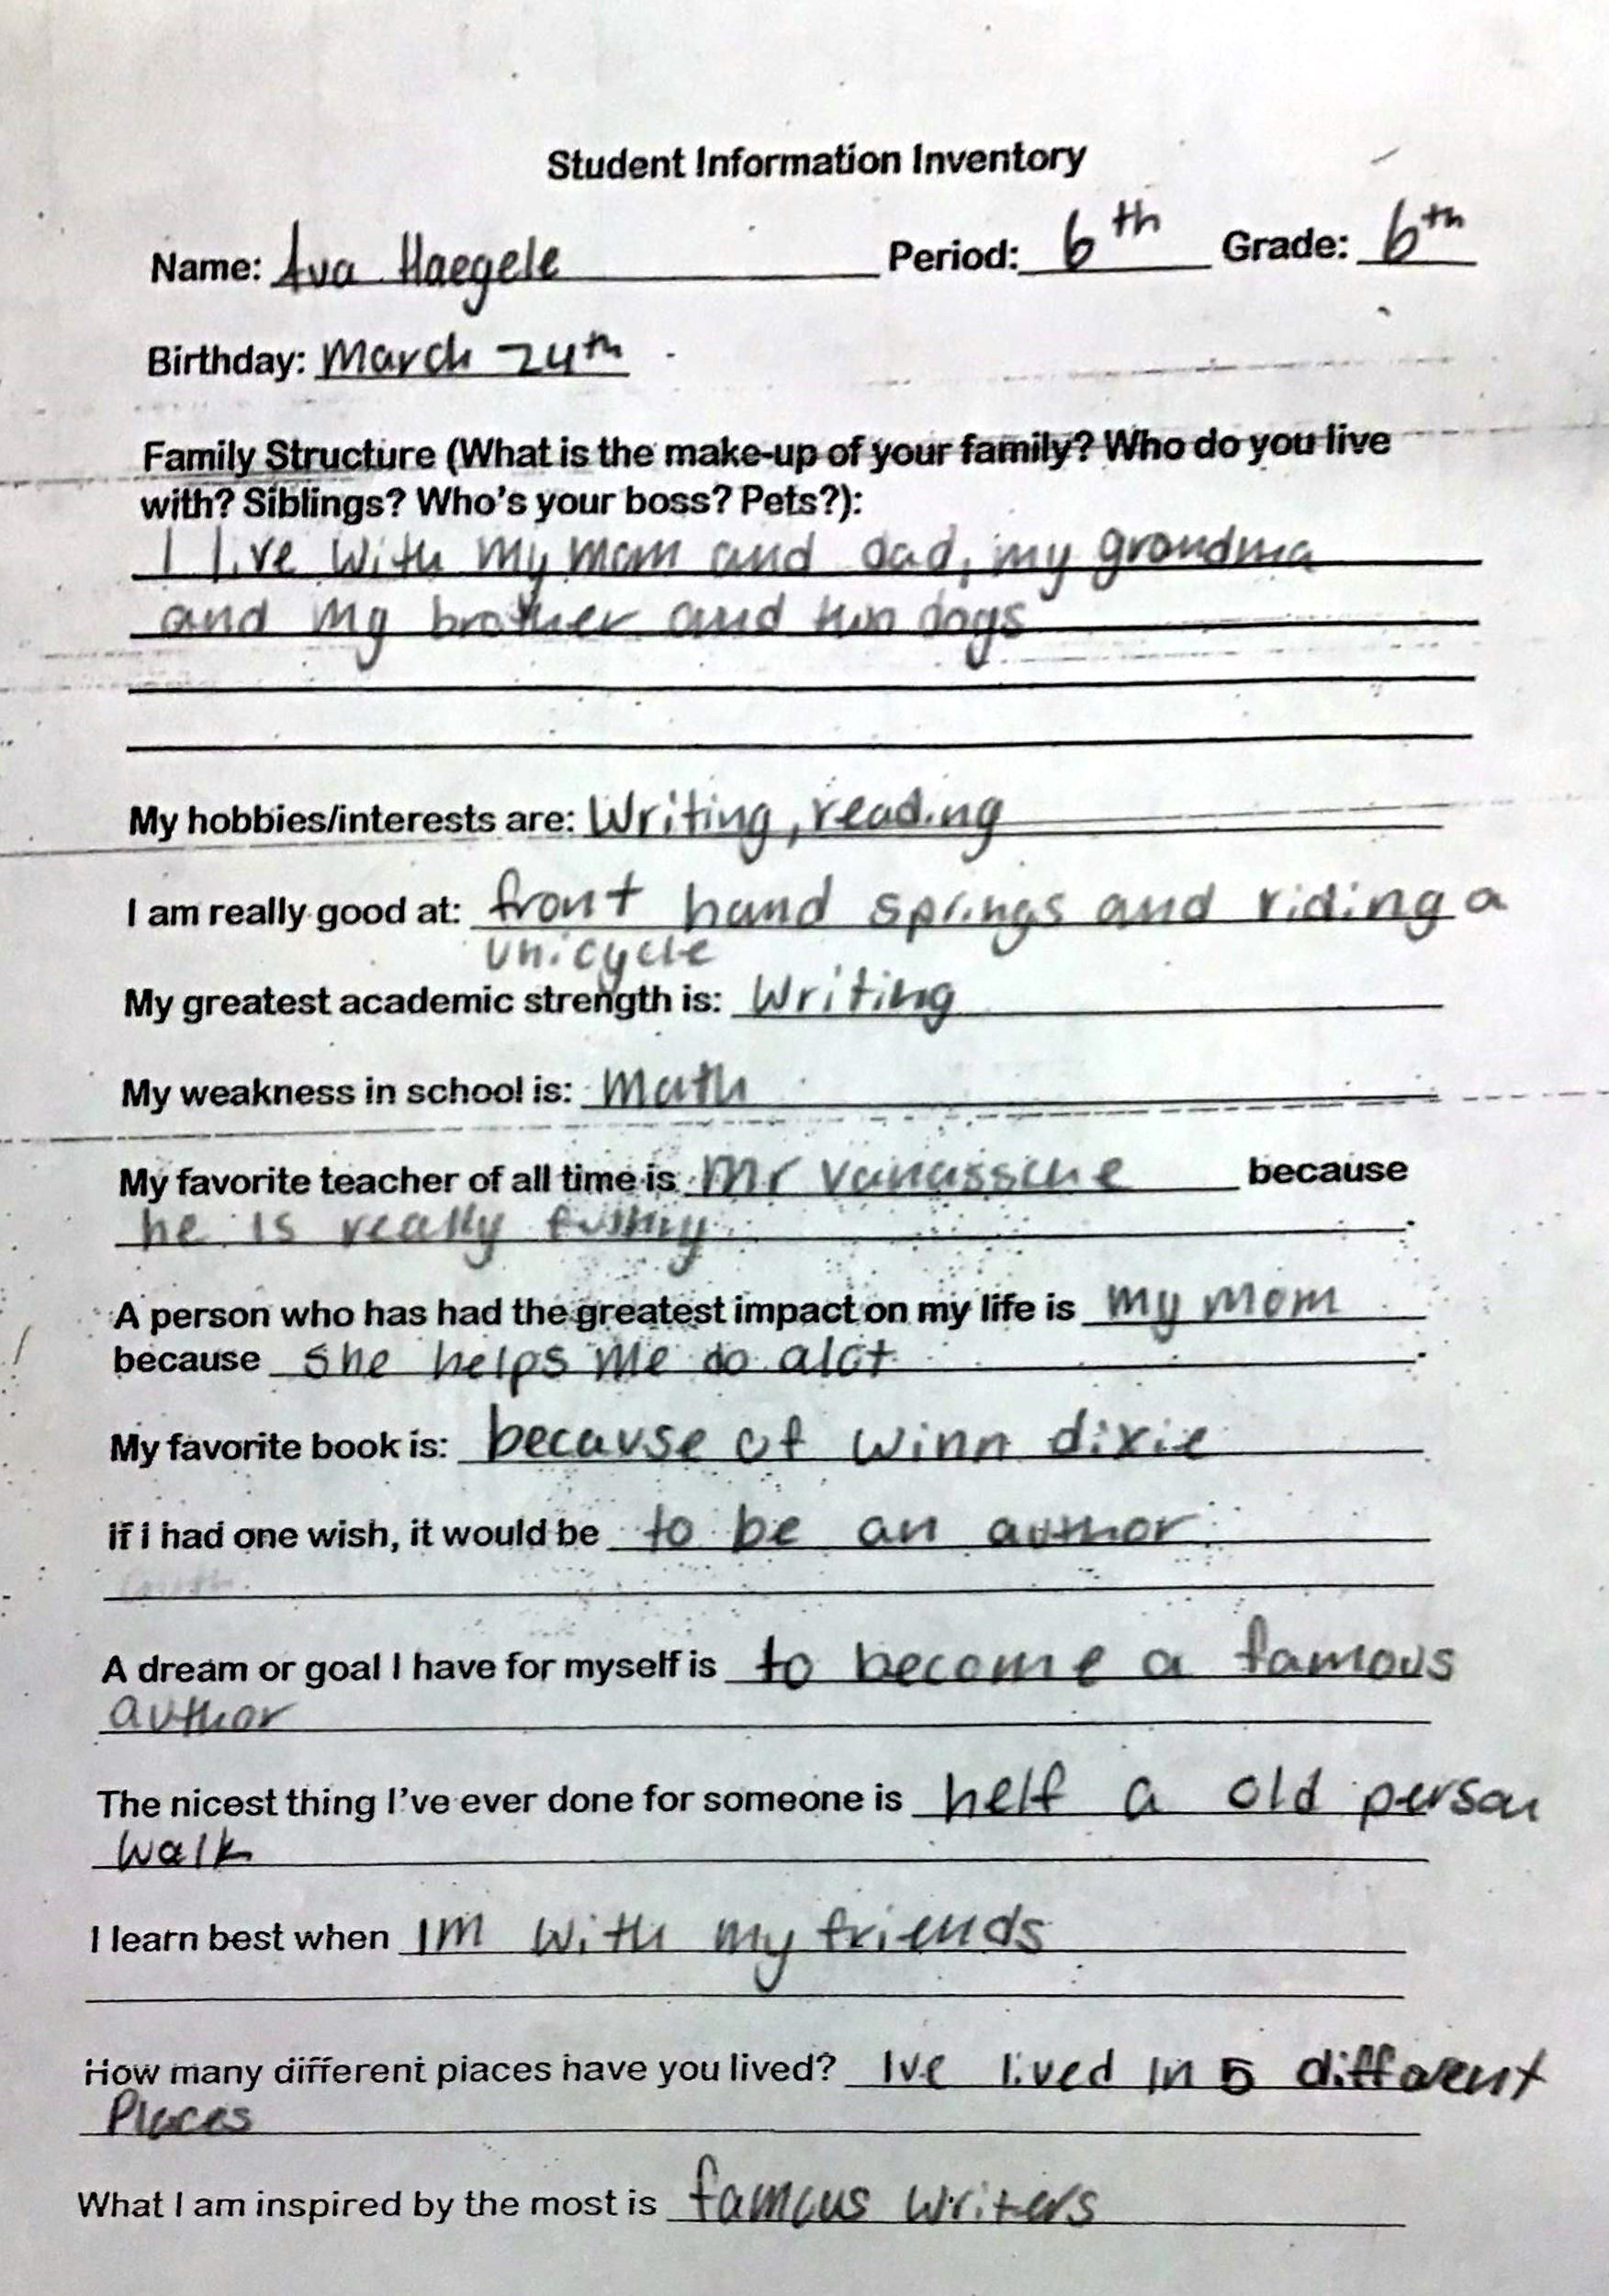 Student Information Inventory
Name: Ava Haegele Period: 6th Grade: 6th
Birthday: March 24th
Family Structure (What is the make-up of your family? Who do you live
with? Siblings? Who's your boss? Pets?):
I live with my mom and dad, my grandma
and my brother and two dogs
My hobbies/interests are: Writing, reading
I am really good at: front hand springs and riding a
unicycle
My greatest academic strength is: Writing
My weakness in school is: Math
My favorite teacher of all time is Mr Vanassche because
he is really funny.
A person who has had the greatest impact on my life is my mom
because she helps me do alot.
My favorite book is: because of winn dixie
If I had one wish, it would be to be an author
A dream or goal I have for myself is to become a famous
author
The nicest thing I've ever done for someone is helf a old person
walk
I learn best when Im with my friends
How many different places have you lived? Ive lived in 5 different
Places
What I am inspired by the most is famous writers